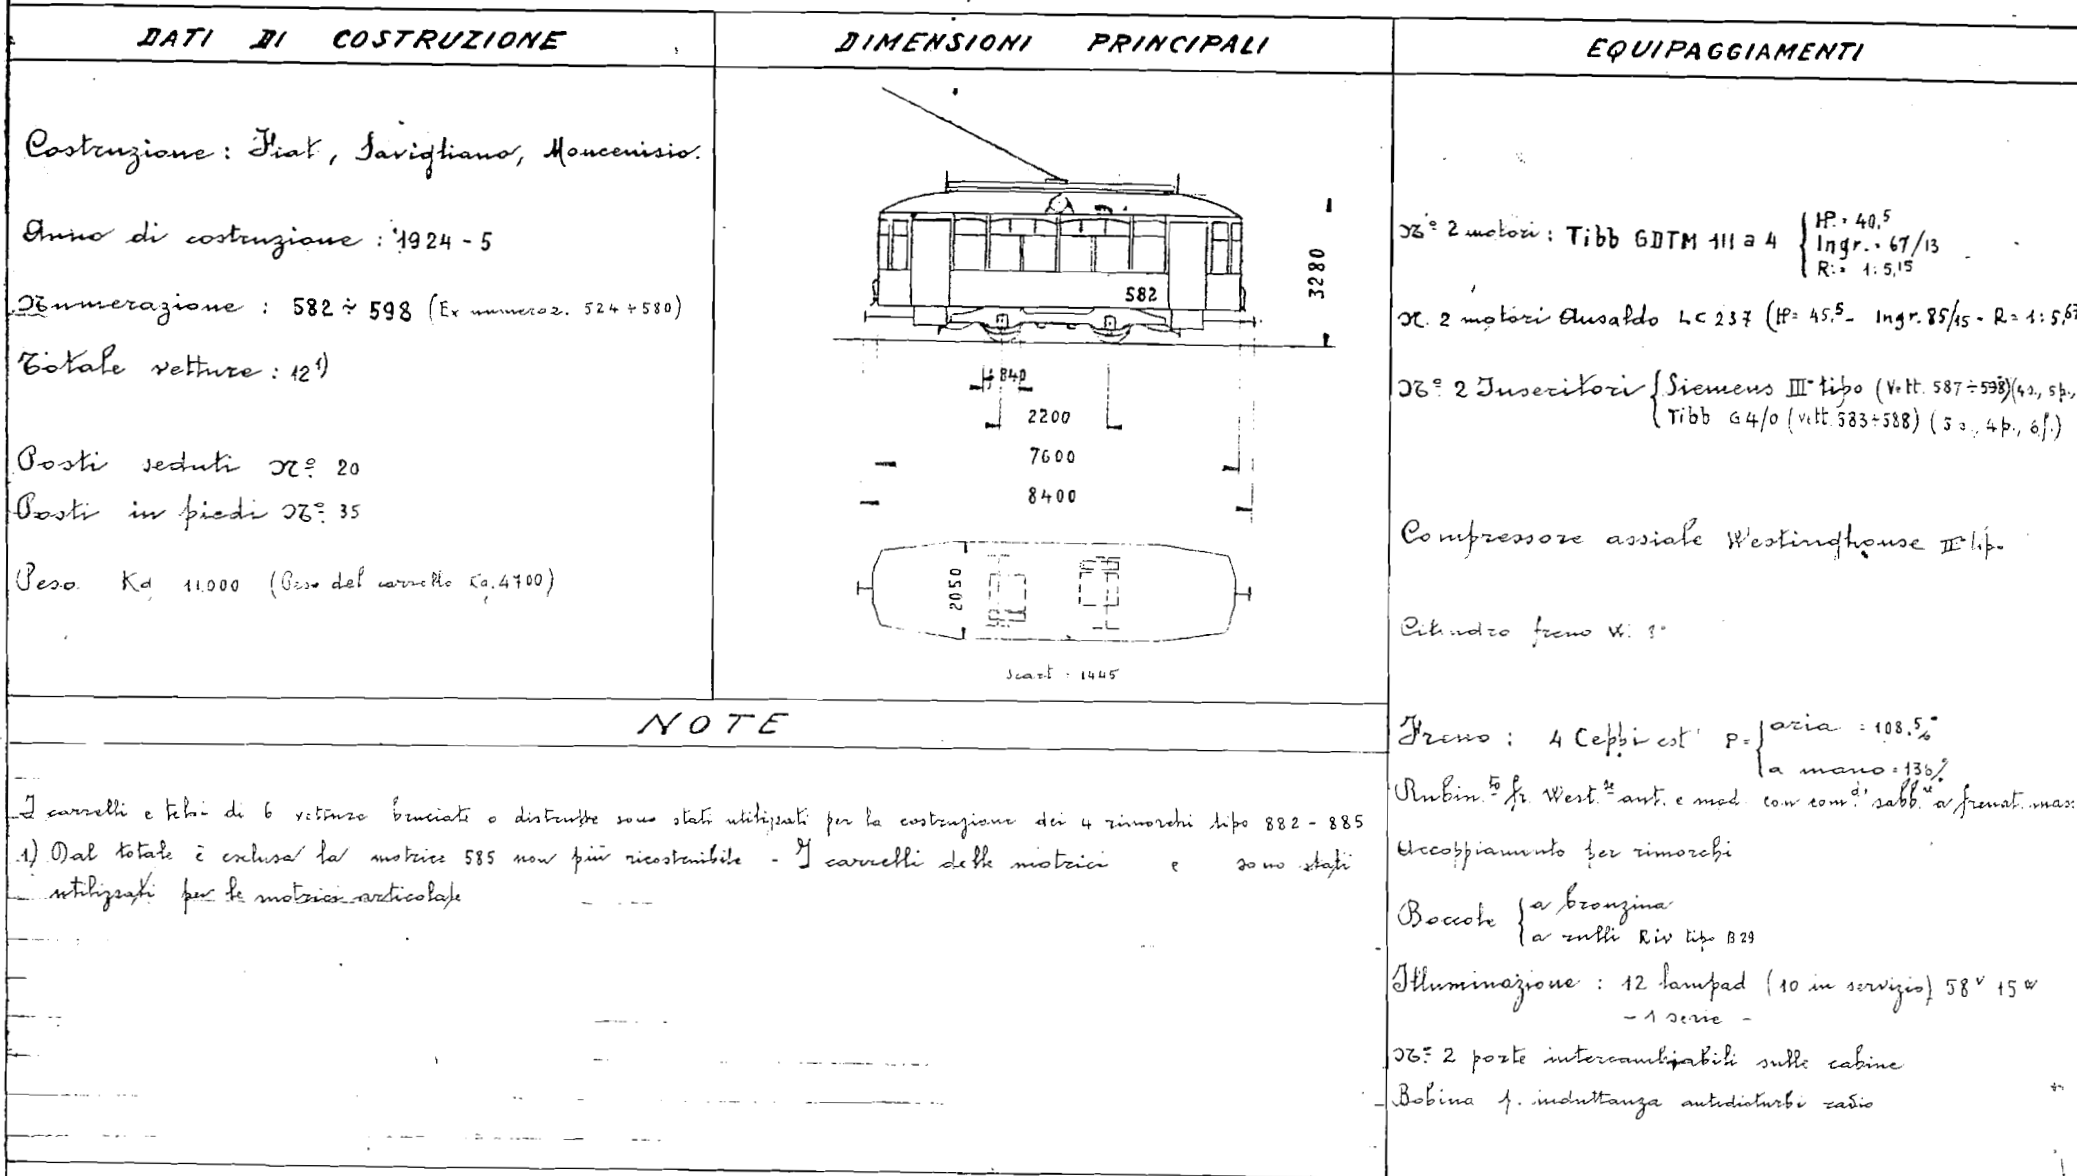 DATI DI COSTRUZIONE
Costruzione: Fiat, Savigliano, Moncenisio.
Anno di costruzione: 1924-5
Numerazione: 582 ÷ 598 (Ex numeraz. 524 ÷ 580)
Totale vetture: 12 1)
Posti seduti N° 20
Posti in piedi N° 35
Peso Kg 11.000 (Peso del carrello Kg. 4700)
DIMENSIONI PRINCIPALI
582
3280
840
2200
7600
8400
2050
scart. 1445
EQUIPAGGIAMENTI
N° 2 motori: Tibb GDTM 111 a 4 { HP. 40,5
Ingr. 67/13
R: 1:5,15
N. 2 motori Ansaldo LC 237 (HP= 45,5 - Ingr. 85/15 - R= 1:5,67
N° 2 Inseritori { Siemens III° tipo (Vett. 587÷598) (4s., 5p.,
Tibb G4/0 (vett. 583÷588) (5s., 4p., 6f.)
Compressore assiale Westinghouse II° tip.
Cilindro freno W.
Freno: 4 Ceppi est' P= { aria = 108,5%
a mano = 136%
Rubin.to fr. West.se aut. e mod. con com.do sabb.re a frenat. mas:
Accoppiamento per rimorchi
Boccole { a bronzina
a rulli Riv tipo B29
Illuminazione: 12 lampad (10 in servizio) 58v 15w
- 1 serie -
N° 2 porte intercambiabili sulle cabine
Bobina p. induttanza antidisturbi radio
NOTE
I carrelli e telai di 6 vetture bruciate o distrutte sono stati utilizzati per la costruzione dei 4 rimorchi tipo 882-885
1) Dal totale è esclusa la motrice 585 non più ricostruibile - I carrelli delle motrici e sono stati
utilizzati per le motrici articolate